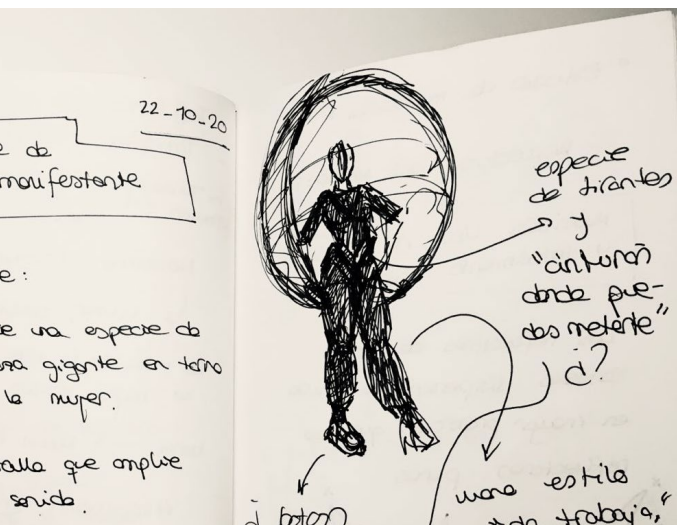 22-10-20
de
manifestante
e:
e una especie de
gigante en torno
la mujer.
que amplie
sonido.
especie
de tirantes
y
"cinturón
donde pue-
das meterte"
¿?
mono estilo
trabaja,"
¿